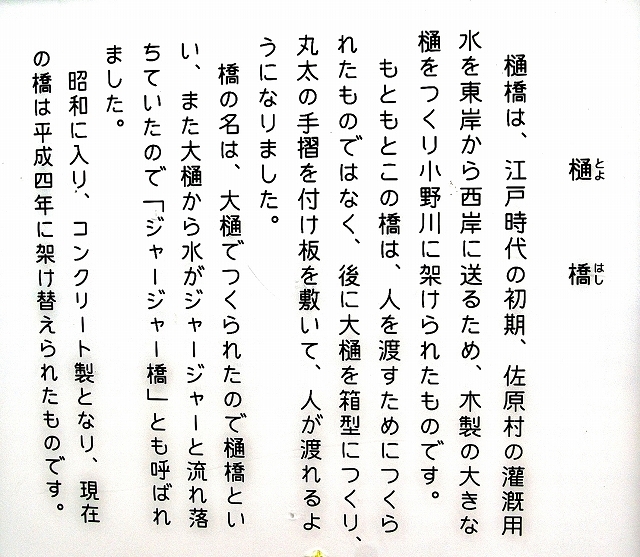 樋橋
とよ はし
樋橋は、江戸時代の初期、佐原村の灌漑用
水を東岸から西岸に送るため、木製の大きな
樋をつくり小野川に架けられたものです。
もともとこの橋は、人を渡すためにつくら
れたものではなく、後に大樋を箱型につくり、
丸太の手摺を付け板を敷いて、人が渡れるよ
うになりました。
橋の名は、大樋でつくられたので樋橋とい
い、また大樋から水がジャージャーと流れ落
ちていたので「ジャージャー橋」とも呼ばれ
ました。
昭和に入り、コンクリート製となり、現在
の橋は平成四年に架け替えられたものです。